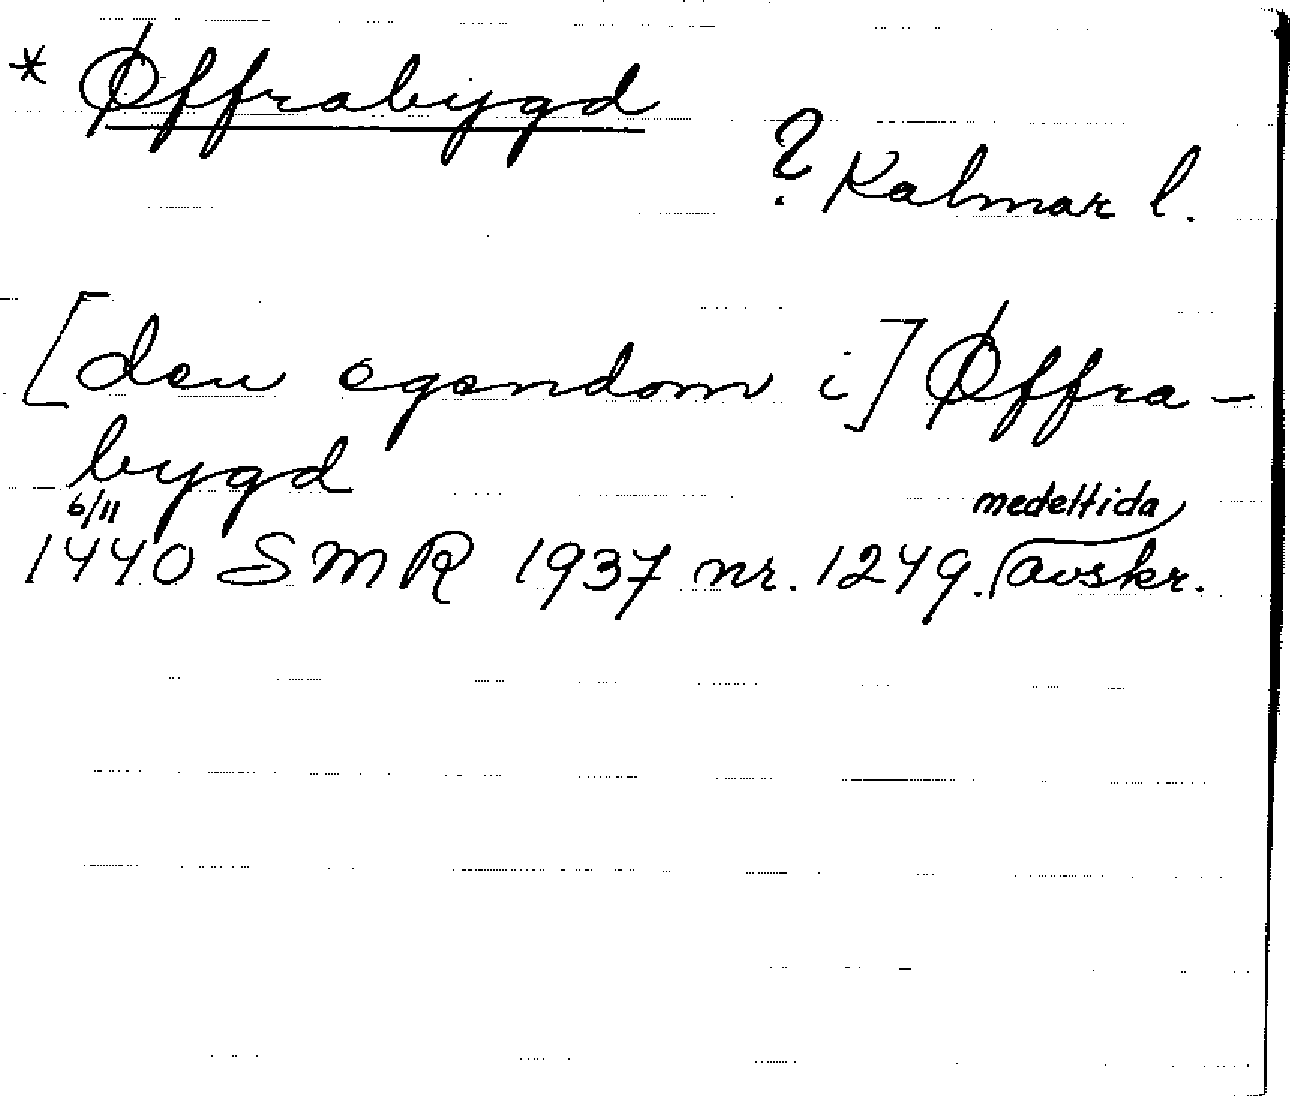 * Øffrabygd
? Kalmar l.
[den egendom i] Øffra-
bygd
6/11 medeltida
1440 SMR 1937 nr. 1249. avskr.